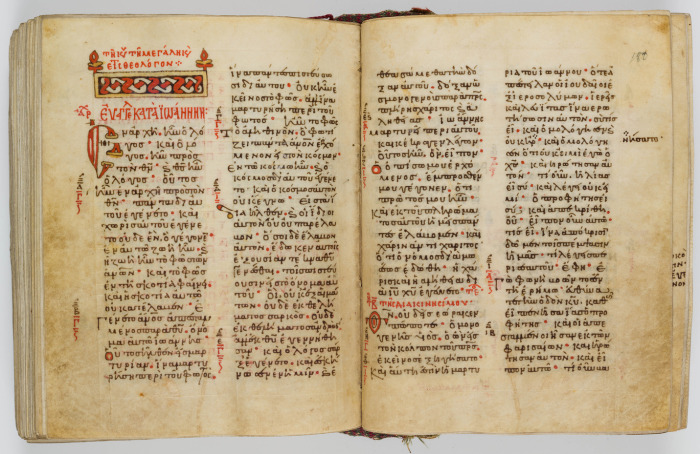 τῇ κυ τῇ μεγάλῃ κυ
ευα κατα ιωαννην:
Εν αρχη ην ο λο
γος· και ο λο
γος ην προς
τον θν· και θς ην
ο λογος· ουτος
ην εν αρχη προς τον
θν· παντα δι αυ
του εγενετο· και
χωρις αυτου εγενε
το ουδε εν, ο γεγονεν
εν αυτω ζωη ην· και
η ζωη ην το φως των
ανων· και το φως
εν τη σκοτια φαινει
και η σκοτια αυτο
ου κατελαβεν· Ε
γενετο ανος απεσταλ
μενος παρα θυ· ονο
μα αυτω ιωαννης·
Ουτος ηλθεν εις μαρ
τυριαν, ινα μαρτυ
ρηση περι του φωτος·
ινα παντες πιστευσω
σι δι αυτου· ουκ ην ε
κεινος το φως, αλλ ινα
μαρτυρηση περι του
φωτος· ην το φως
το αληθινον· ο φωτι
ζει παντα ανον ερχο
μενον εις τον κοσμον·
εν τω κοσμω ην· και ο
κοσμος δι αυτου εγενε
το· και ο κοσμος αυτον
ουκ εγνω· εις τα ι
δια ηλθεν· και οι ιδιοι
αυτον ου παρελα
βον· οσοι δε ελαβον
αυτον· εδωκεν αυτοις
εξουσιαν τεκνα θυ
γενεσθαι· τοις πιστευ
ουσιν εις το ονομα αυ
του· οι, ουκ εξ αιμα
των· ουδε εκ θελη
ματος σαρκος· ουδε
εκ θεληματος ανδρος
αλλ εκ θυ εγεννηθη
σαν· και ο λογος σαρξ
εγενετο· και εσκη
νωσεν εν ημιν· και ε
θεασαμεθα την δο
ξαν αυτου· δοξαν ως
μονογενους παρα προς·
πληρης χαριτος και α
ληθειας· ιωαννης
μαρτυρει περι αυτου,
και κεκραγε λεγων·
ουτος ην, ον ειπον·
ο οπισω μου ερχο
μενος· εμπροσθεν
μου γεγονεν· οτι
πρωτος μου ην·
και εκ του πληρωμα
τος αυτου ημεις παν
τες ελαβομεν· και
χαριν αντι χαριτος·
οτι ο νομος δια μω
σεως εδοθη· η χα
ρις και η αληθεια δι
α ιυ χυ εγενετο·
τη β της διακαινησιμου
Θν ουδεις εωρακεν
πωποτε· ο μονο
γενης υιος· ο ων εις
τον κολπον του προς·
εκεινος εξηγησατο
και αυτη εστιν η μαρτυ
ρια του ιωαννου· οτε α
πεστειλαν οι ιουδαιοι ε
ξ ιεροσολυμων· ιερεις
και λευιτας ινα ερω
τησωσιν αυτον· συ τις
ει· και ομολογησεν
και ομολογη
σεν οτι ουκ ειμι εγω ο
χς· και ηρωτησαν αυ
τον· τι ουν ηλιας
ει συ· και λεγει ουκ ει
μι· ο προφητης ει
συ· και απεκριθη·
ου· ειπον ουν αυτω
τις ει· ινα αποκρισιν
δωμεν τοις πεμψασιν
ημας· τι λεγεις πε
ρι σεαυτου· εφη· Ε
γω φωνη βοωντος εν
τη ερημω· ευθυνατε
την οδον κυ, καθως
ειπεν ησαιας ο προ
φητης· και οι απε
σταλμενοι ησαν εκ των
φαρισαιων· και ηρω
τησαν αυτον· και ει
πον αυτω· τι ουν βα